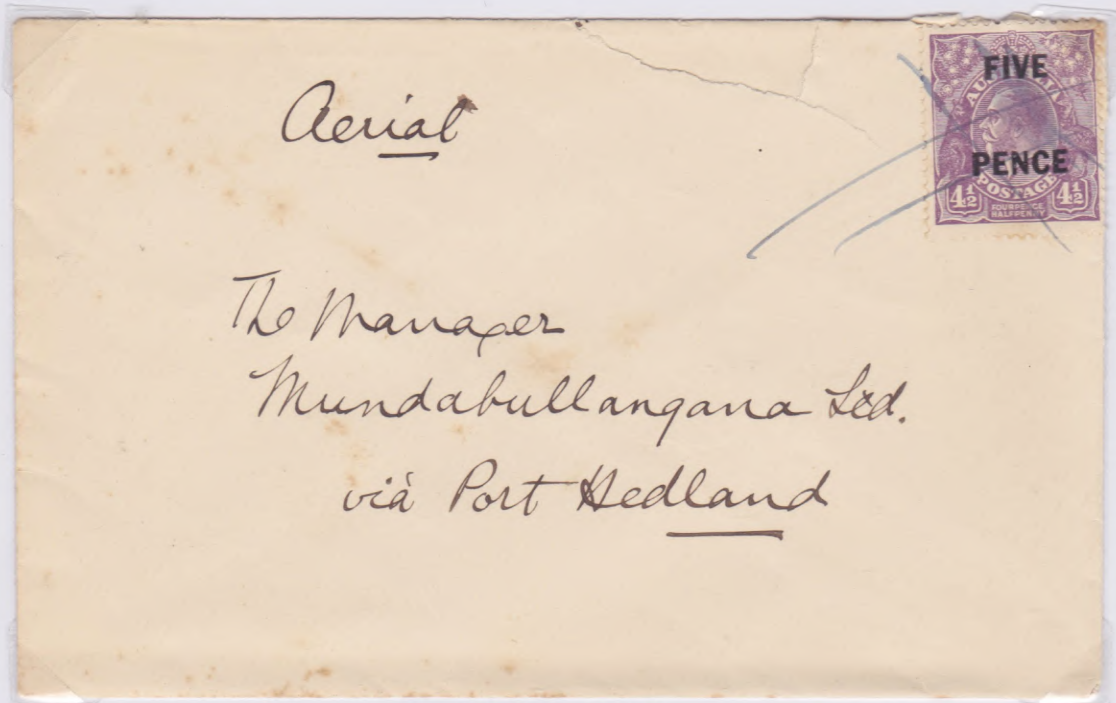 Aerial
FIVE
AUSTRALIA
PENCE
POSTAGE
4½ 4½
FOURPENCE
HALFPENNY
The Manager
Mundabullangana Ltd.
vià Port Hedland